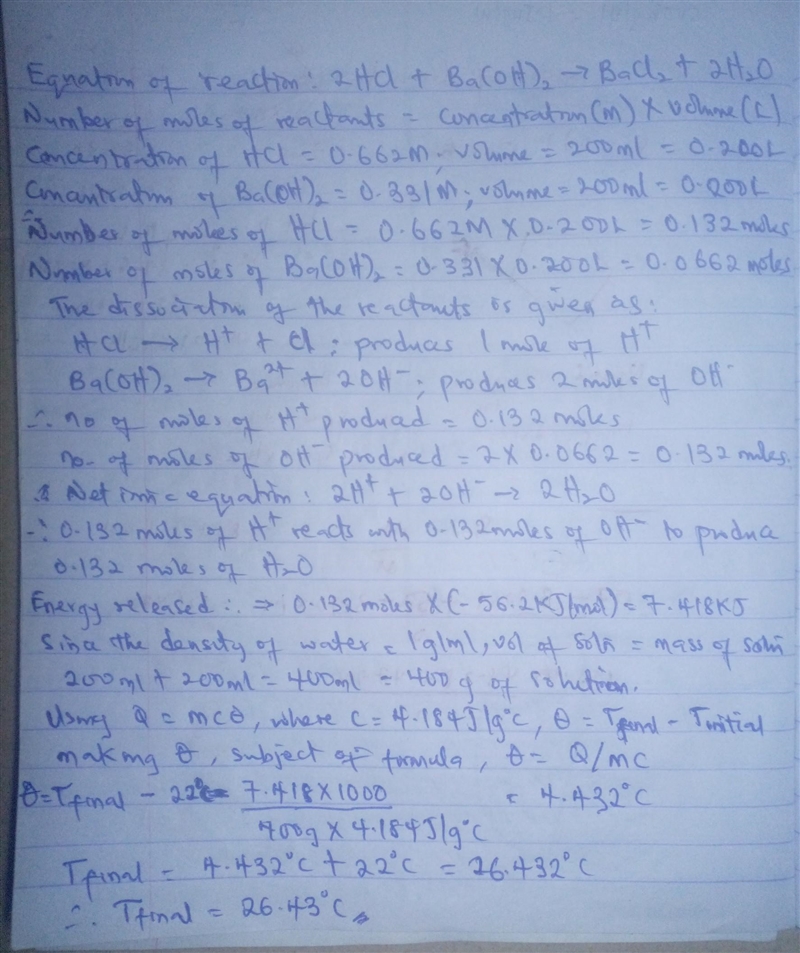 Equation of reaction: 2HCl + Ba(OH)₂ → BaCl₂ + 2H₂O
Number of moles of reactants = concentration(M) X volume(L)
Concentration of HCl = 0.662M; volume = 200ml = 0.200L
Concentration of Ba(OH)₂ = 0.331M; volume = 200ml = 0.200L
Number of moles of HCl = 0.662M X 0.200L = 0.132 moles
Number of moles of Ba(OH)₂ = 0.331 X 0.200L = 0.0662 moles
The dissociation of the reactants is given as:
HCl → H⁺ + Cl; produces 1 mole of H⁺
Ba(OH)₂ → Ba²⁺ + 2OH⁻; produces 2 moles of OH⁻
∴ no of moles of H⁺ produced = 0.132 moles
no. of moles of OH⁻ produced = 2 X 0.0662 = 0.132 moles.
Net ionic equation: 2H⁺ + 2OH⁻ → 2H₂O
∴ 0.132 moles of H⁺ reacts with 0.132 moles of OH⁻ to produce
0.132 moles of H₂O
Energy released ∴ ⇒ 0.132 moles X (-56.2KJ/mol) = 7.418KJ
Since the density of water = 1g/ml, vol of soln = mass of soln
200ml + 200ml = 400ml = 400g of solution.
Using Q = mcθ, where c = 4.184J/g°C, θ = Tfinal - Tinitial
making θ, subject of formula, θ = Q/mC
θ = Tfinal - 22°C = 7.418 X 1000 = 4.432°C
400g X 4.184J/g°C
Tfinal = 4.432°C + 22°C = 26.432°C
∴ Tfinal = 26.43°C